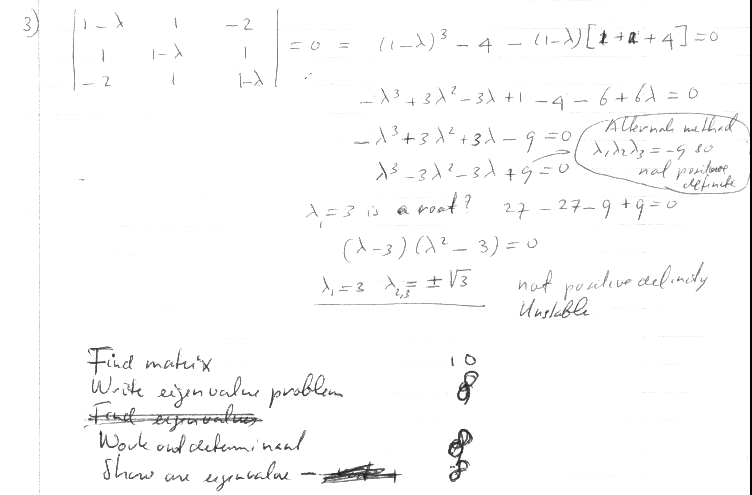 3) | 1-λ 1 -2 |
| 1 1-λ 1 | = 0 = (1-λ)³ - 4 - (1-λ)[1+1+4] = 0
| -2 1 1-λ |
-λ³ + 3λ² - 3λ + 1 - 4 - 6 + 6λ = 0
-λ³ + 3λ² + 3λ - 9 = 0
λ³ - 3λ² - 3λ + 9 = 0
Alternate method
λ₁λ₂λ₃ = -9 so
not positive
definite
λ₁ = 3 is a root? 27 - 27 - 9 + 9 = 0
(λ-3)(λ² - 3) = 0
λ₁ = 3 λ₂,₃ = ± √3 not positive definity
Unstable
Find matrix 10
Write eigenvalue problem
Find eigenvalues
Work out determinant
Show one eigenvalue -